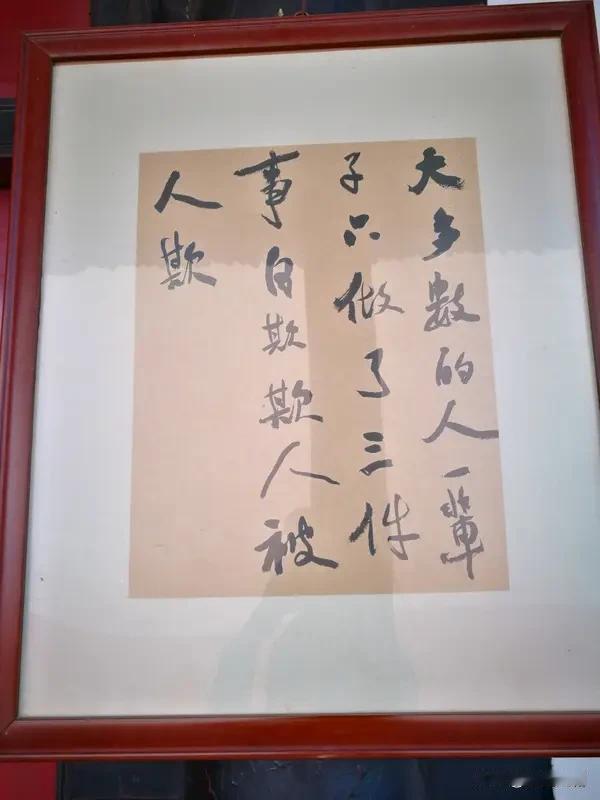 大多数的人一輩
子只做了三件
事自欺欺人被
人欺